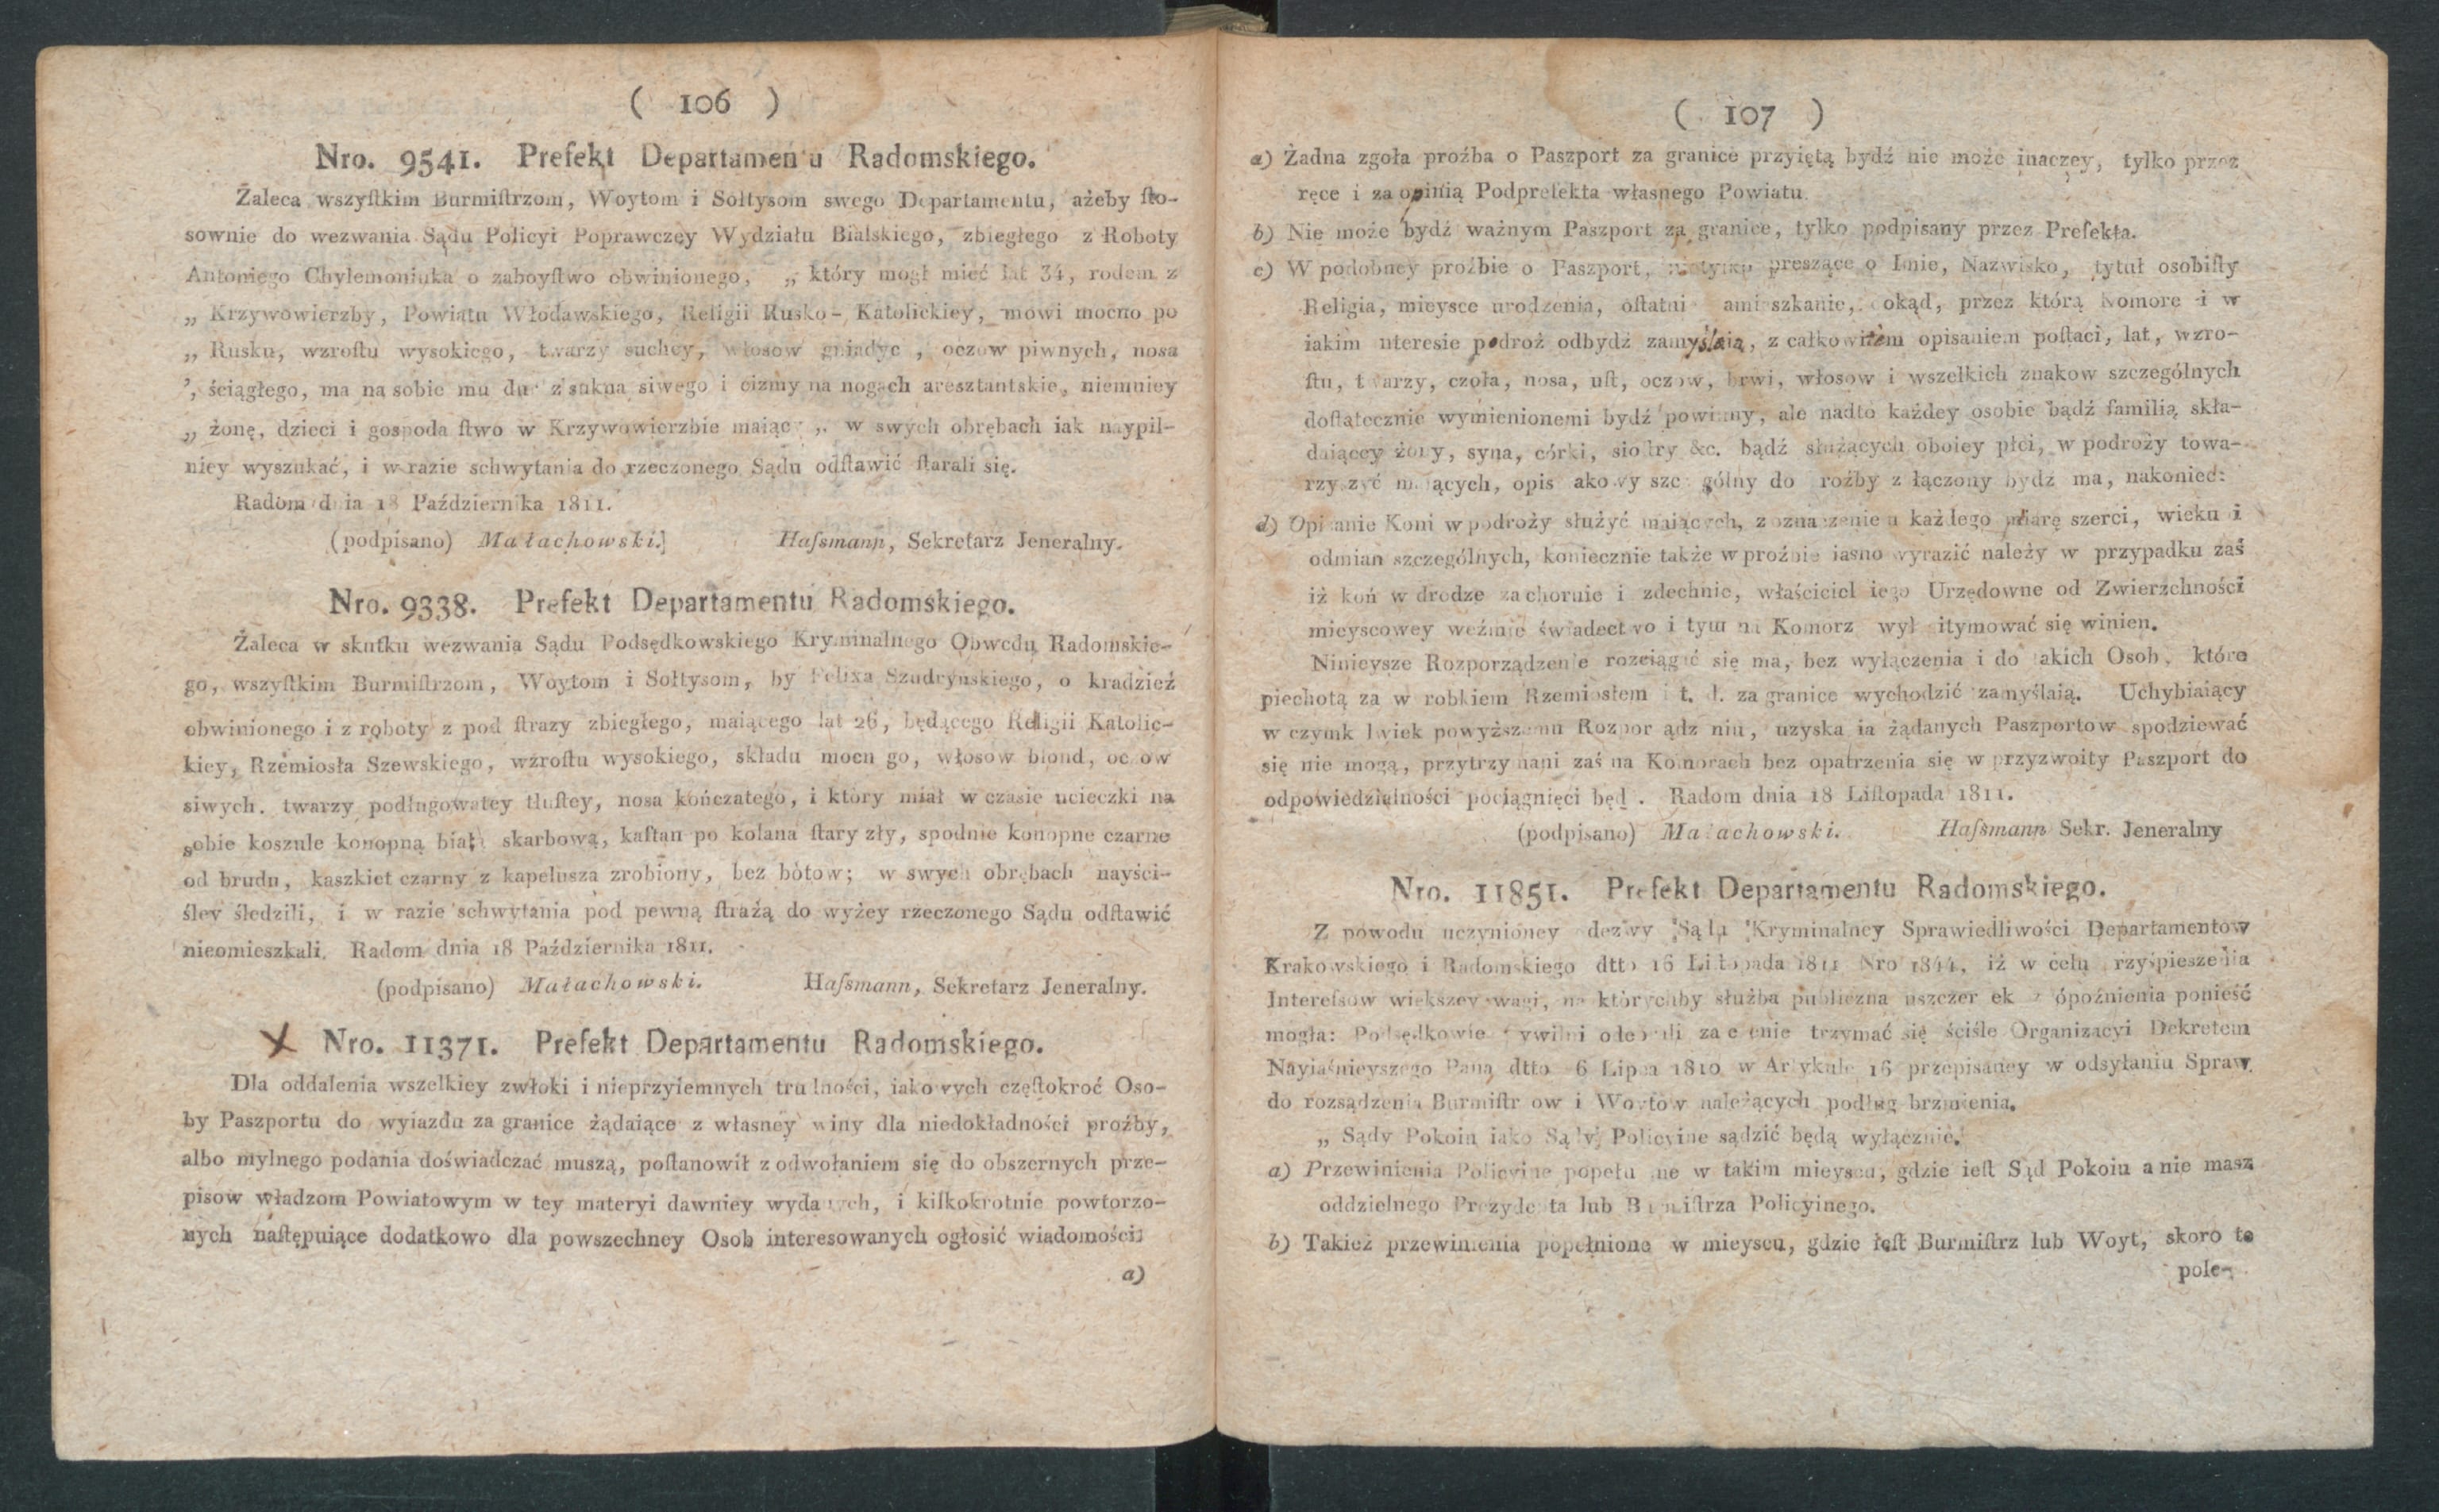 ( 106 )
Nro. 9541. Prefekt Departamentu Radomskiego.
Żaleca wszyſtkim Burmiſtrzom, Woytom i Sołtysom swego Departamentu, ażeby ſto-
sownie do wezwania Sądu Policyi Poprawczey Wydziału Bialskiego, zbiegłego z Roboty
Antoniego Chylemoniuka o zaboyſtwo obwinionego, „ który mogł mieć lat 34, rodem z
„ Krzywowierzby, Powiatu Włodawskiego, Religii Rusko-Katolickiey, mowi mocno po
„ Rusku, wzroſtu wysokiego, twarzy suchey, włosow gniadyc , oczow piwnych, nosa
„ ściągłego, ma na sobie mu du z sukna siwego i cizmy na nogach aresztantskie, niemniey
„ żonę, dzieci i gospoda ſtwo w Krzywowierzbie maiący „ w swych obrębach iak naypil-
niey wyszukać, i w razie schwytania do rzeczonego Sądu odſtawić ſtarali się.
Radom dnia 18 Października 1811.
(podpisano) Małachowski. Haſsmann, Sekretarz Jeneralny.
Nro. 9338. Prefekt Departamentu Radomskiego.
Żaleca w skutku wezwania Sądu Podsędkowskiego Kryminalnego Obwodu Radomskie-
go, wszyſtkim Burmiſtrzom, Woytom i Sołtysom, by Felixa Szudryńskiego, o kradzież
obwinionego i z roboty z pod ſtrazy zbiegłego, maiącego lat 26, będącego Religii Katolic-
kiey, Rzemiosła Szewskiego, wzroſtu wysokiego, składu mocn go, włosow blond, oczow
siwych. twarzy podługowatey tłuſtey, nosa kończatego, i ktory miał w czasie ucieczki na
sobie koszule konopną białą skarbową, kaftan po kolana ſtary zły, spodnie konopne czarne
od brudu, kaszkiet czarny z kapelusza zrobiony, bez botow; w swych obrębach nayści-
śley śledzili, i w razie schwytania pod pewną ſtrażą do wyżey rzeczonego Sądu odſtawić
nieomieszkali. Radom dnia 18 Października 1811.
(podpisano) Małachowski. Haſsmann, Sekretarz Jeneralny.
X Nro. 11371. Prefekt Departamentu Radomskiego.
Dla oddalenia wszelkiey zwłoki i nieprzyiemnych trudności, iakowych częſtokroć Oso-
by Paszportu do wyiazdu za granice żądaiące z własney winy dla niedokładności proźby,
albo mylnego podania doświadczać muszą, poſtanowił z odwołaniem się do obszernych prze-
pisow władzom Powiatowym w tey materyi dawniey wydanych, i kilkokrotnie powtorzo-
nych naſtępuiące dodatkowo dla powszechney Osob interesowanych ogłosić wiadomości:
a)
( 107 )
a) Żadna zgoła proźba o Paszport za granice przyiętą bydź nie może inaczey, tylko przez
ręce i za opinią Podprefekta własnego Powiatu.
b) Nie może bydź ważnym Paszport za granice, tylko podpisany przez Prefekta.
c) W podobney proźbie o Paszport, preszące o Imie, Nazwisko, tytuł osobiſty
Religia, mieysce urodzenia, oſtatni ami szkanie, okąd, przez którą Komore i w
iakim nteresie podroż odbydź zamyślaią, z całkowitem opisaniem poſtaci, lat, wzro-
ſtu, twarzy, czoła, nosa, uſt, oczow, brwi, włosow i wszelkich znakow szczególnych
doſtatecznie wymienionemi bydź powinny, ale nadto każdey osobie bądź familią skła-
daiącey żony, syna, córki, sioſtry &c. bądź służących oboiey płci, w podroży towa-
rzyszyć maiących, opis akowy szc gólny do roźby z łączony bydź ma, nakoniec:
d) Opisanie Koni w podroży służyć maiących, z oznaczeniem każdego miarę szerci, wieku i
odmian szczególnych, koniecznie także w proźbie iasno wyrazić należy w przypadku zaś
iż koń w drodze zachoruie i zdechnie, właściciel iego Urzędowne od Zwierzchności
mieyscowey weźmie świadectwo i tym na Komorz wyl itymować się winien.
Ninieysze Rozporządzenie rozciągać się ma, bez wyłączenia i do takich Osob, które
piechotą za w robkiem Rzemiosłem i t. d. za granice wychodzić zamyślaią. Uchybiaiący
w czymk lwiek powyższemu Rozpor ądz niu, uzyska ia żądanych Paszportow spodziewać
się nie mogą, przytrzymani zaś na Komorach bez opatrzenia się w przyzwoity Paszport do
odpowiedzialności pociągnięci będ . Radom dnia 18 Liſtopada 1811.
(podpisano) Małachowski. Haſsmann Sekr. Jeneralny
Nro. 11851. Prefekt Departamentu Radomskiego.
Z powodu uczynioney dezwy Sądu Kryminalney Sprawiedliwości Departamentow
Krakowskiego i Radomskiego dtto 16 Liſtopada 1811 Nro 1844, iż w celu rzyśpieszenia
Intereſsow większey wagi, na którychby służba publiczna uszczer ek z ópoźnienia ponieść
mogła: Podsędkowie ywilni odebrali zalecenie trzymać się ściśle Organizacyi Dekretem
Nayiaśnieyszego Pana dtto 6 Lipca 1810 w Artykule 16 przepisaney w odsyłaniu Spraw
do rozsądzenia Burmiſtr ow i Woytow należących podług brzmienia.
„ Sądy Pokoiu iako Sądy Policyine sądzić będą wyłącznie.
a) Przewinienia Policyine popełn ne w takim mieyscu, gdzie ieſt Sąd Pokoiu a nie masz
oddzielnego Prezyde ta lub Burmiſtrza Policyinego.
b) Takież przewinienia popełnione w mieyscu, gdzie ieſt Burmiſtrz lub Woyt, skoro te
pole-